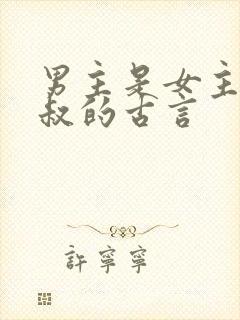 男主是女主
叔的古言
許寧寧